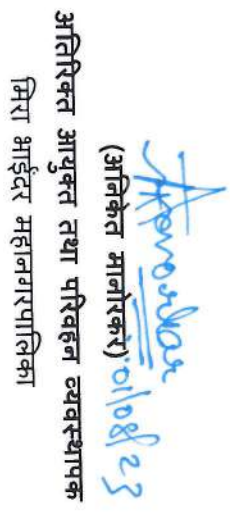 Amanorkar
01/08/23
(अनिकेत मानोरकर)
अतिरिक्त आयुक्त तथा परिवहन व्यवस्थापक
मिरा भाईंदर महानगरपालिका